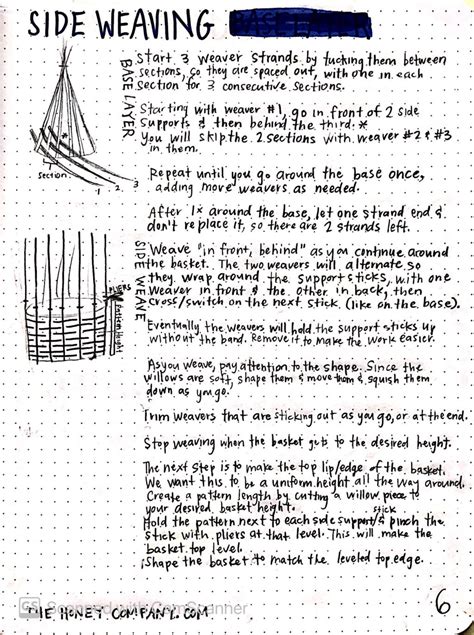 SIDE WEAVING BASE LAYER
BASE LAYER
Start 3 weaver strands by tucking them between
sections, so they are spaced out, with one in each
section for 3 consecutive sections.
Starting with weaver #1, go in front of 2 side
supports & then behind the third. *
You will skip the 2 sections with weaver #2 & #3
in them.
section
1 2 3
Repeat until you go around the base once,
adding more weavers as needed.
After 1x around the base, let one strand end &
don't replace it, so there are 2 strands left.
SIDE WEAVE
Weave "in front, behind" as you continue around
the basket. The two weavers will alternate, so
they wrap around the support sticks, with one
weaver in front & the other in back, then
cross/switch on the next stick (like on the base).
Eventually the weavers will hold the support sticks up
without the band. Remove it to make the work easier.
As you weave, pay attention to the shape. Since the
willows are soft, shape them & move them & squish them
down as you go.
Trim weavers that are sticking out as you go, or at the end.
Stop weaving when the basket gets to the desired height.
The next step is to make the top lip/edge of the basket.
We want this to be a uniform height all the way around.
Create a pattern length by cutting a willow piece to
your desired basket height.
Hold the pattern next to each side support stick & pinch the
stick with pliers at that level. This will make the
basket top level.
Shape the basket to match the leveled top edge.
THE HONEY COMPANY.COM
CS Scanned with CamScanner
6